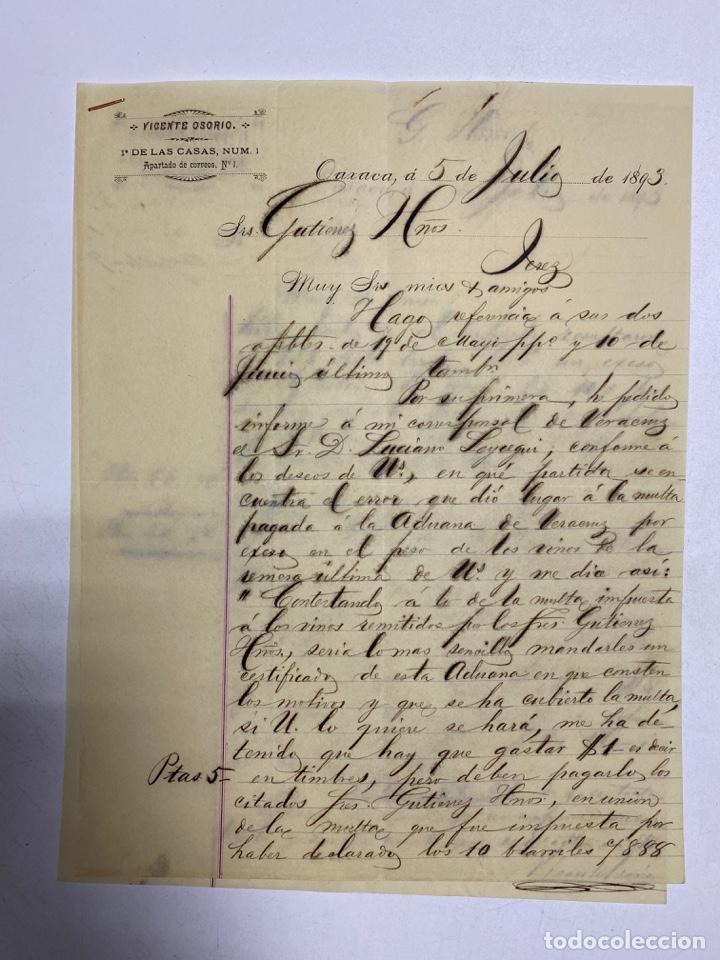 VICENTE OSORIO.
1ª DE LAS CASAS, NUM. 1
Apartado de correos, Nº 1.
Oaxaca, á 5 de Julio de 1893.
Srs. Gutiérrez Hnos.
Jerez
Muy Srs mios & amigos
Hago referencia á sus dos
apbles. de 19 de Mayo ppº y 10 de
Junio último tambn.
Por su primera, he pedido
informe á mi corresponsal de Veracruz
el Sr. D. Luciano Leycegui, conforme á
los deseos de Us., en qué partida se en-
cuentra el error que dió lugar á la multa
pagada á la Aduana de Veracruz por
exeso en el peso de los vinos de la
remesa última de Us. y me dice así:
" Contestando á lo de la multa impuesta
á los vinos remitidos por los Sres. Gutiérrez
Hnos., seria lo mas sencillo mandarles un
certificado de esta Aduana en que consten
los motivos y que se ha cubierto la multa,
si U. lo quiere se hará, me ha de-
tenido que hay que gastar $1 es decir
Ptas 5- en timbres, pero deben pagarlo los
citados Sres. Gutiérrez Hnos, en union
de la multa que fue impuesta por
haber declarado los 10 barriles c/ 888
todocoleccion
todocoleccion.net